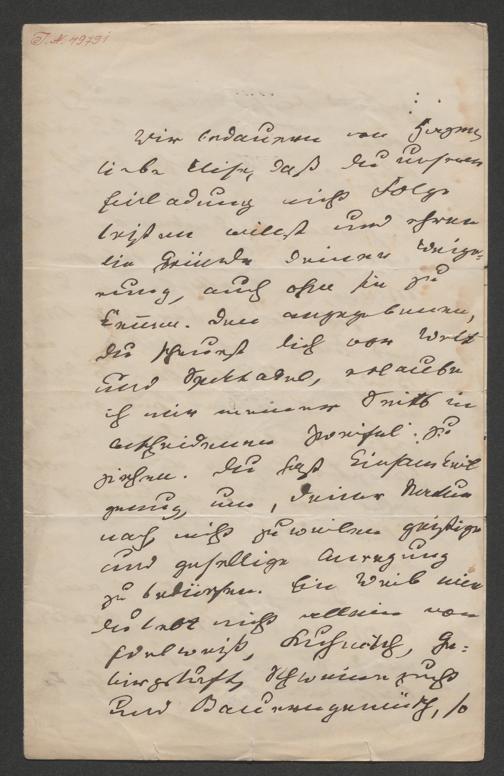 I. N. 49791
Wir bedauern von Herzen,
liebe Elise, daß du unserer
Einladung nicht Folge
leisten willst und ehren
die Gründe deiner Weige-
rung, auch ohne sie zu
kennen. Den angegebenen,
du scheuest dich vor Welt
und Spektakel, erlaube
ich mir meiner Seits in
entschiedenen Zweifel zu
ziehen. Du hast Einsamkeit
genug, um, deiner Natur
nach nicht zuweilen geistige
und gesellige Anregung
zu bedürfen. Ein Weib wie
du lebt nicht allein von
Edelweiß, Kuhmilch, Ge-
birgsluft, Schweinezucht
und Bauerngemüth, so